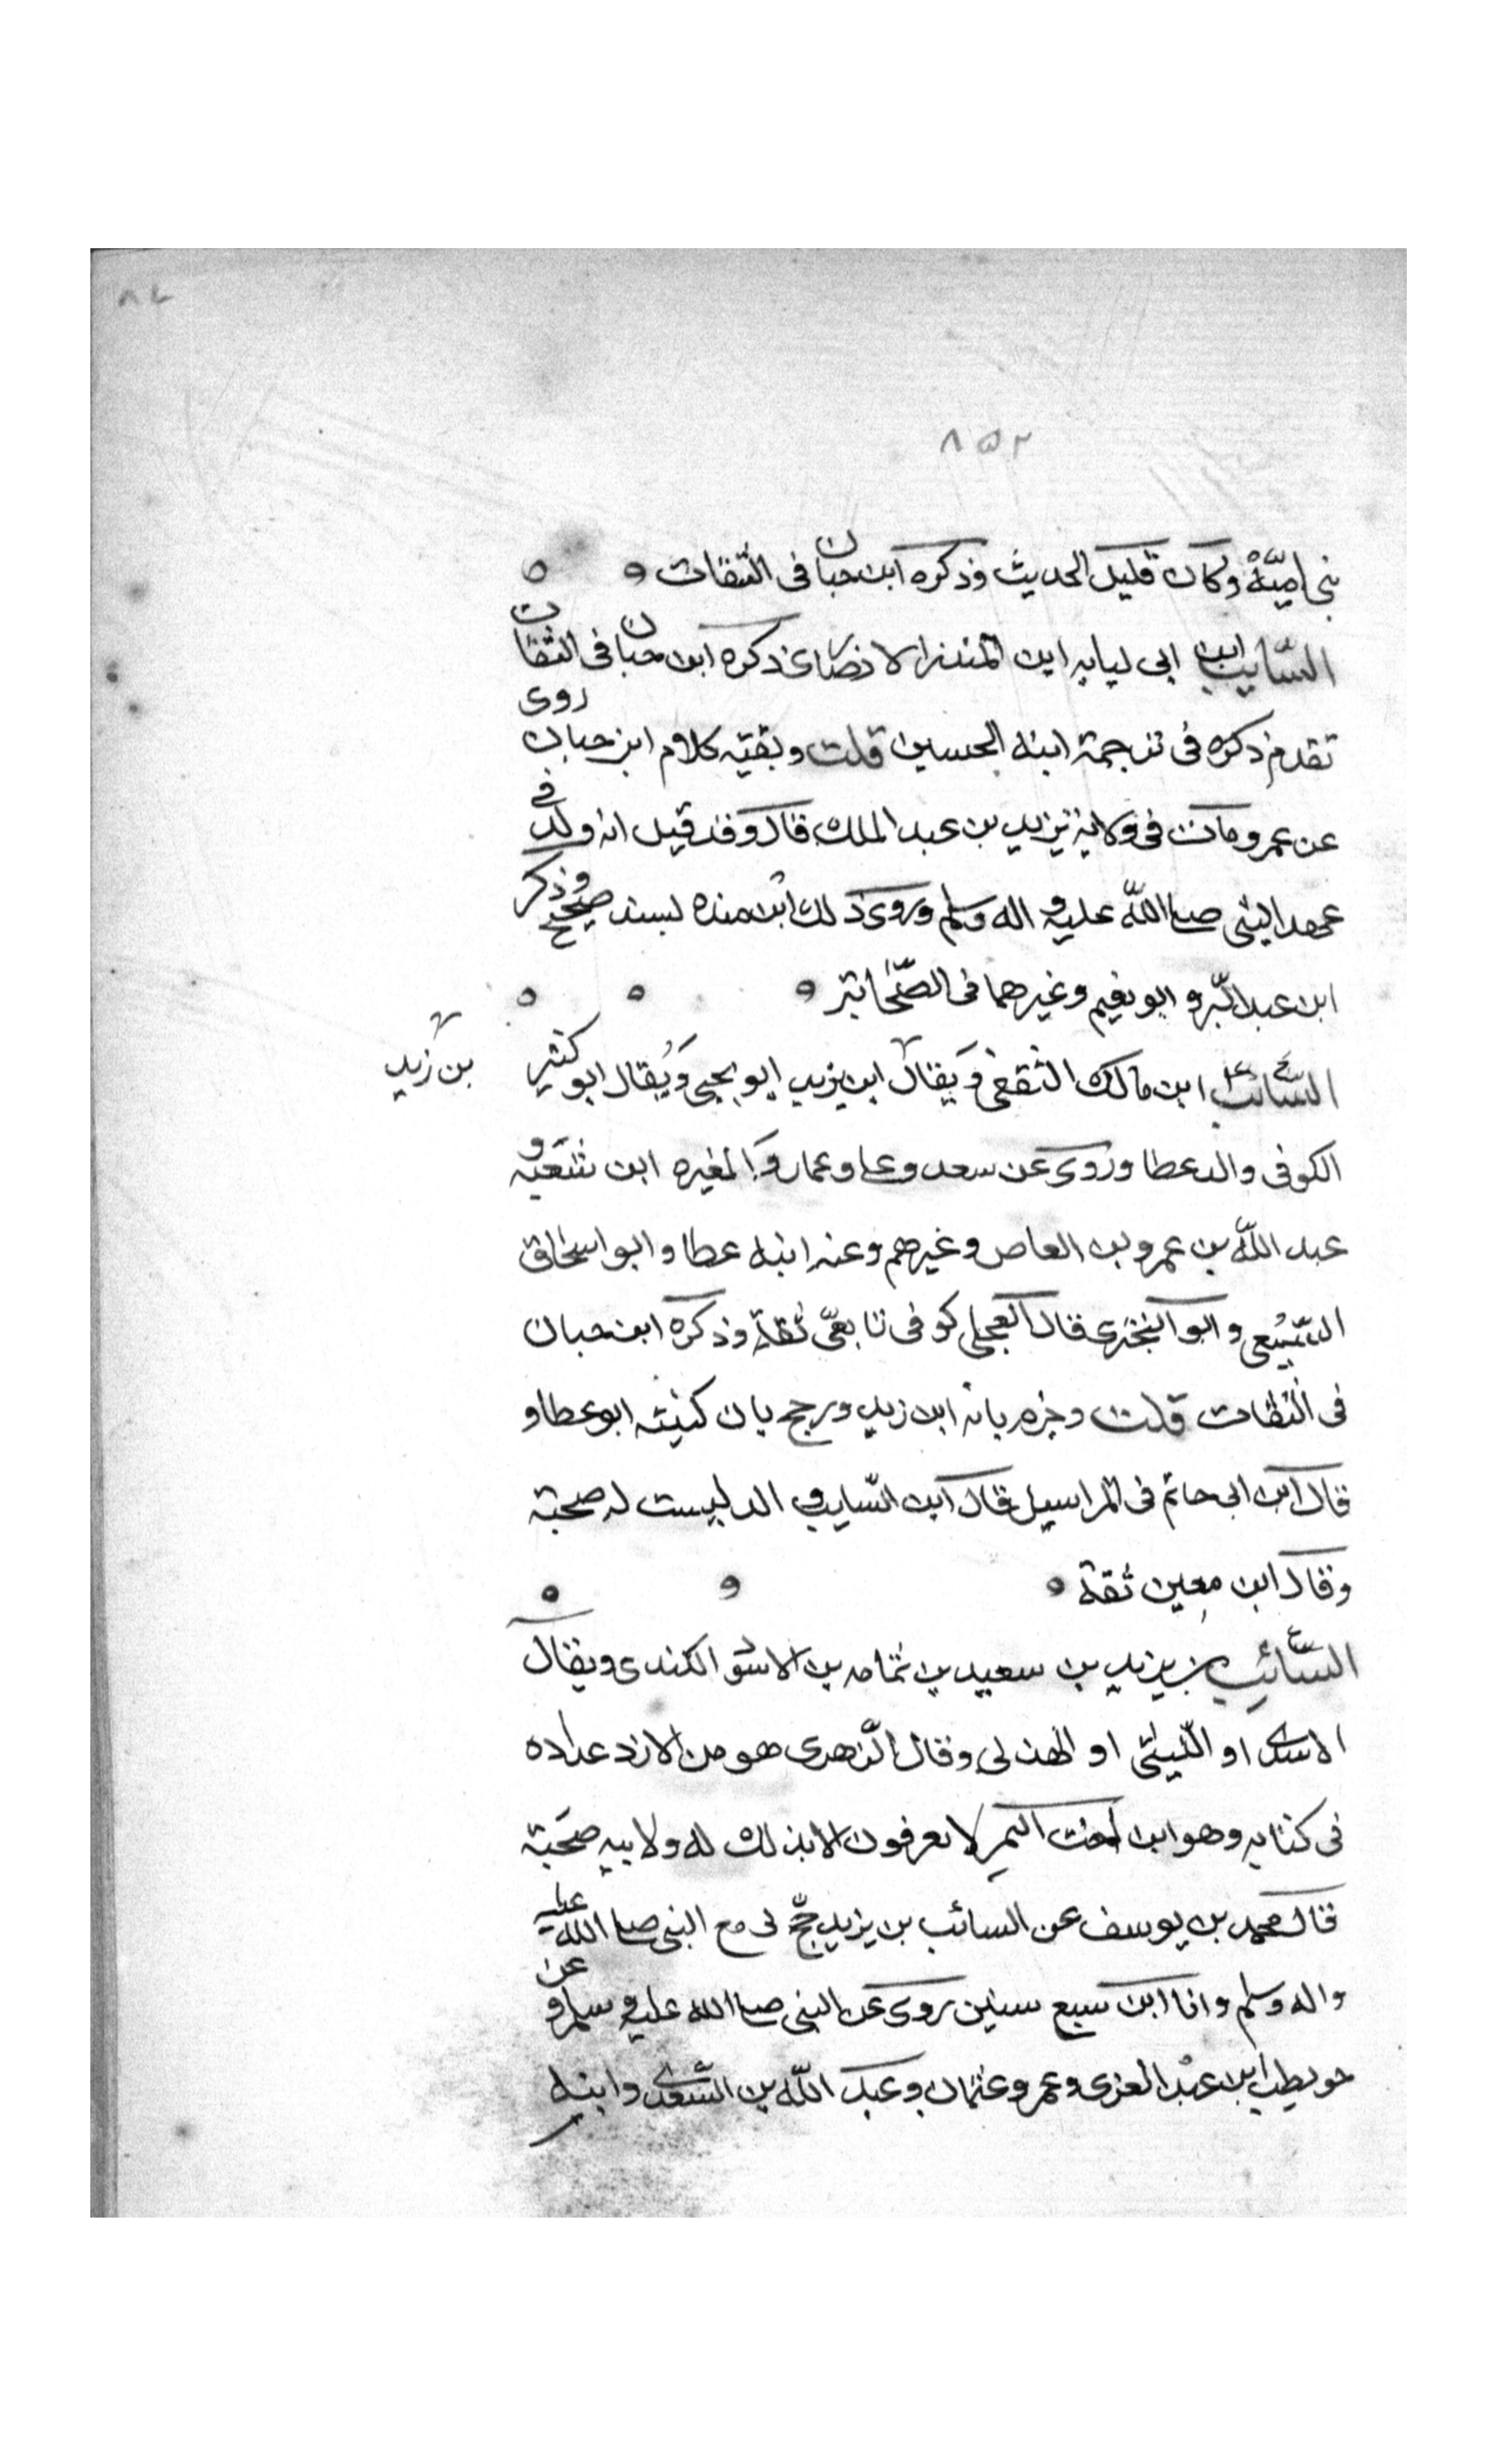 ٨٢
٨٥٢
بنى اميّة وكان قليل الحديث وذكره ابن حبان فى الثقات
السّايب ابن ابى لبابه ابن المنذر الانصارى ذكره ابن حبان فى الثقات
تقدم ذكره فى ترجمة ابنه الحسين قلت وبقيّه كلام ابن حبان روى
عن عمر ومات فى ولاية يزيد بن عبد الملك قال وقد قيل انه ولد فى
عهد النبى صلى اللّه عليه و اله وسلم وروى ذلك ابن منده بسند صحيح وذكر
ابن عبد البّر و ابو نعيم وغيرهما فى الصّحابة
السّائب ابن مالك الثقفى وَيقال ابن يزيد ابو يحيى وَيُقال ابو كثير
بن زيد
الكوفى والد عطا وروى عن سعد وعلى وعمار وَالمغيره ابن شعبه و
عبد اللّه بن عمرو بن العاص وغيرهم وعنه ابنه عطا و ابو اسحاق
السّبيعى و ابو البخترى قال العجلى كوفى تابعىّ ثقة وذكره ابن حبان
فى الثقات قلت وجزم بانه ابن زيد ورجح بان كنيته ابو عطا و
قال ابن ابى حاتم فى المراسيل قال ابن السّايب الد ليست له صحبة
وقال ابن معين ثقة
السّائب بن يزيد بن سعيد بن ثمامه بن الاسود الكندى ويقال
الاسدى او اللّيثى او الهذلى وقال الزّهرى هو من الازد عداده
فى كنانه وهو ابن اخت النمر لا يعرفون الا بذلك له ولابيه صحَبة
قال محمد بن يوسف عن السائب بن يزيد حجّ لى مع النبى صلى اللّه عليه
واله وسلم وانا ابن سبع سنين روى عن النبى صلى الله عليه وسلم و عن
حويطب ابن عبد العزى وعمر وعثمان وعبد اللّه بن السّعدى وابنه